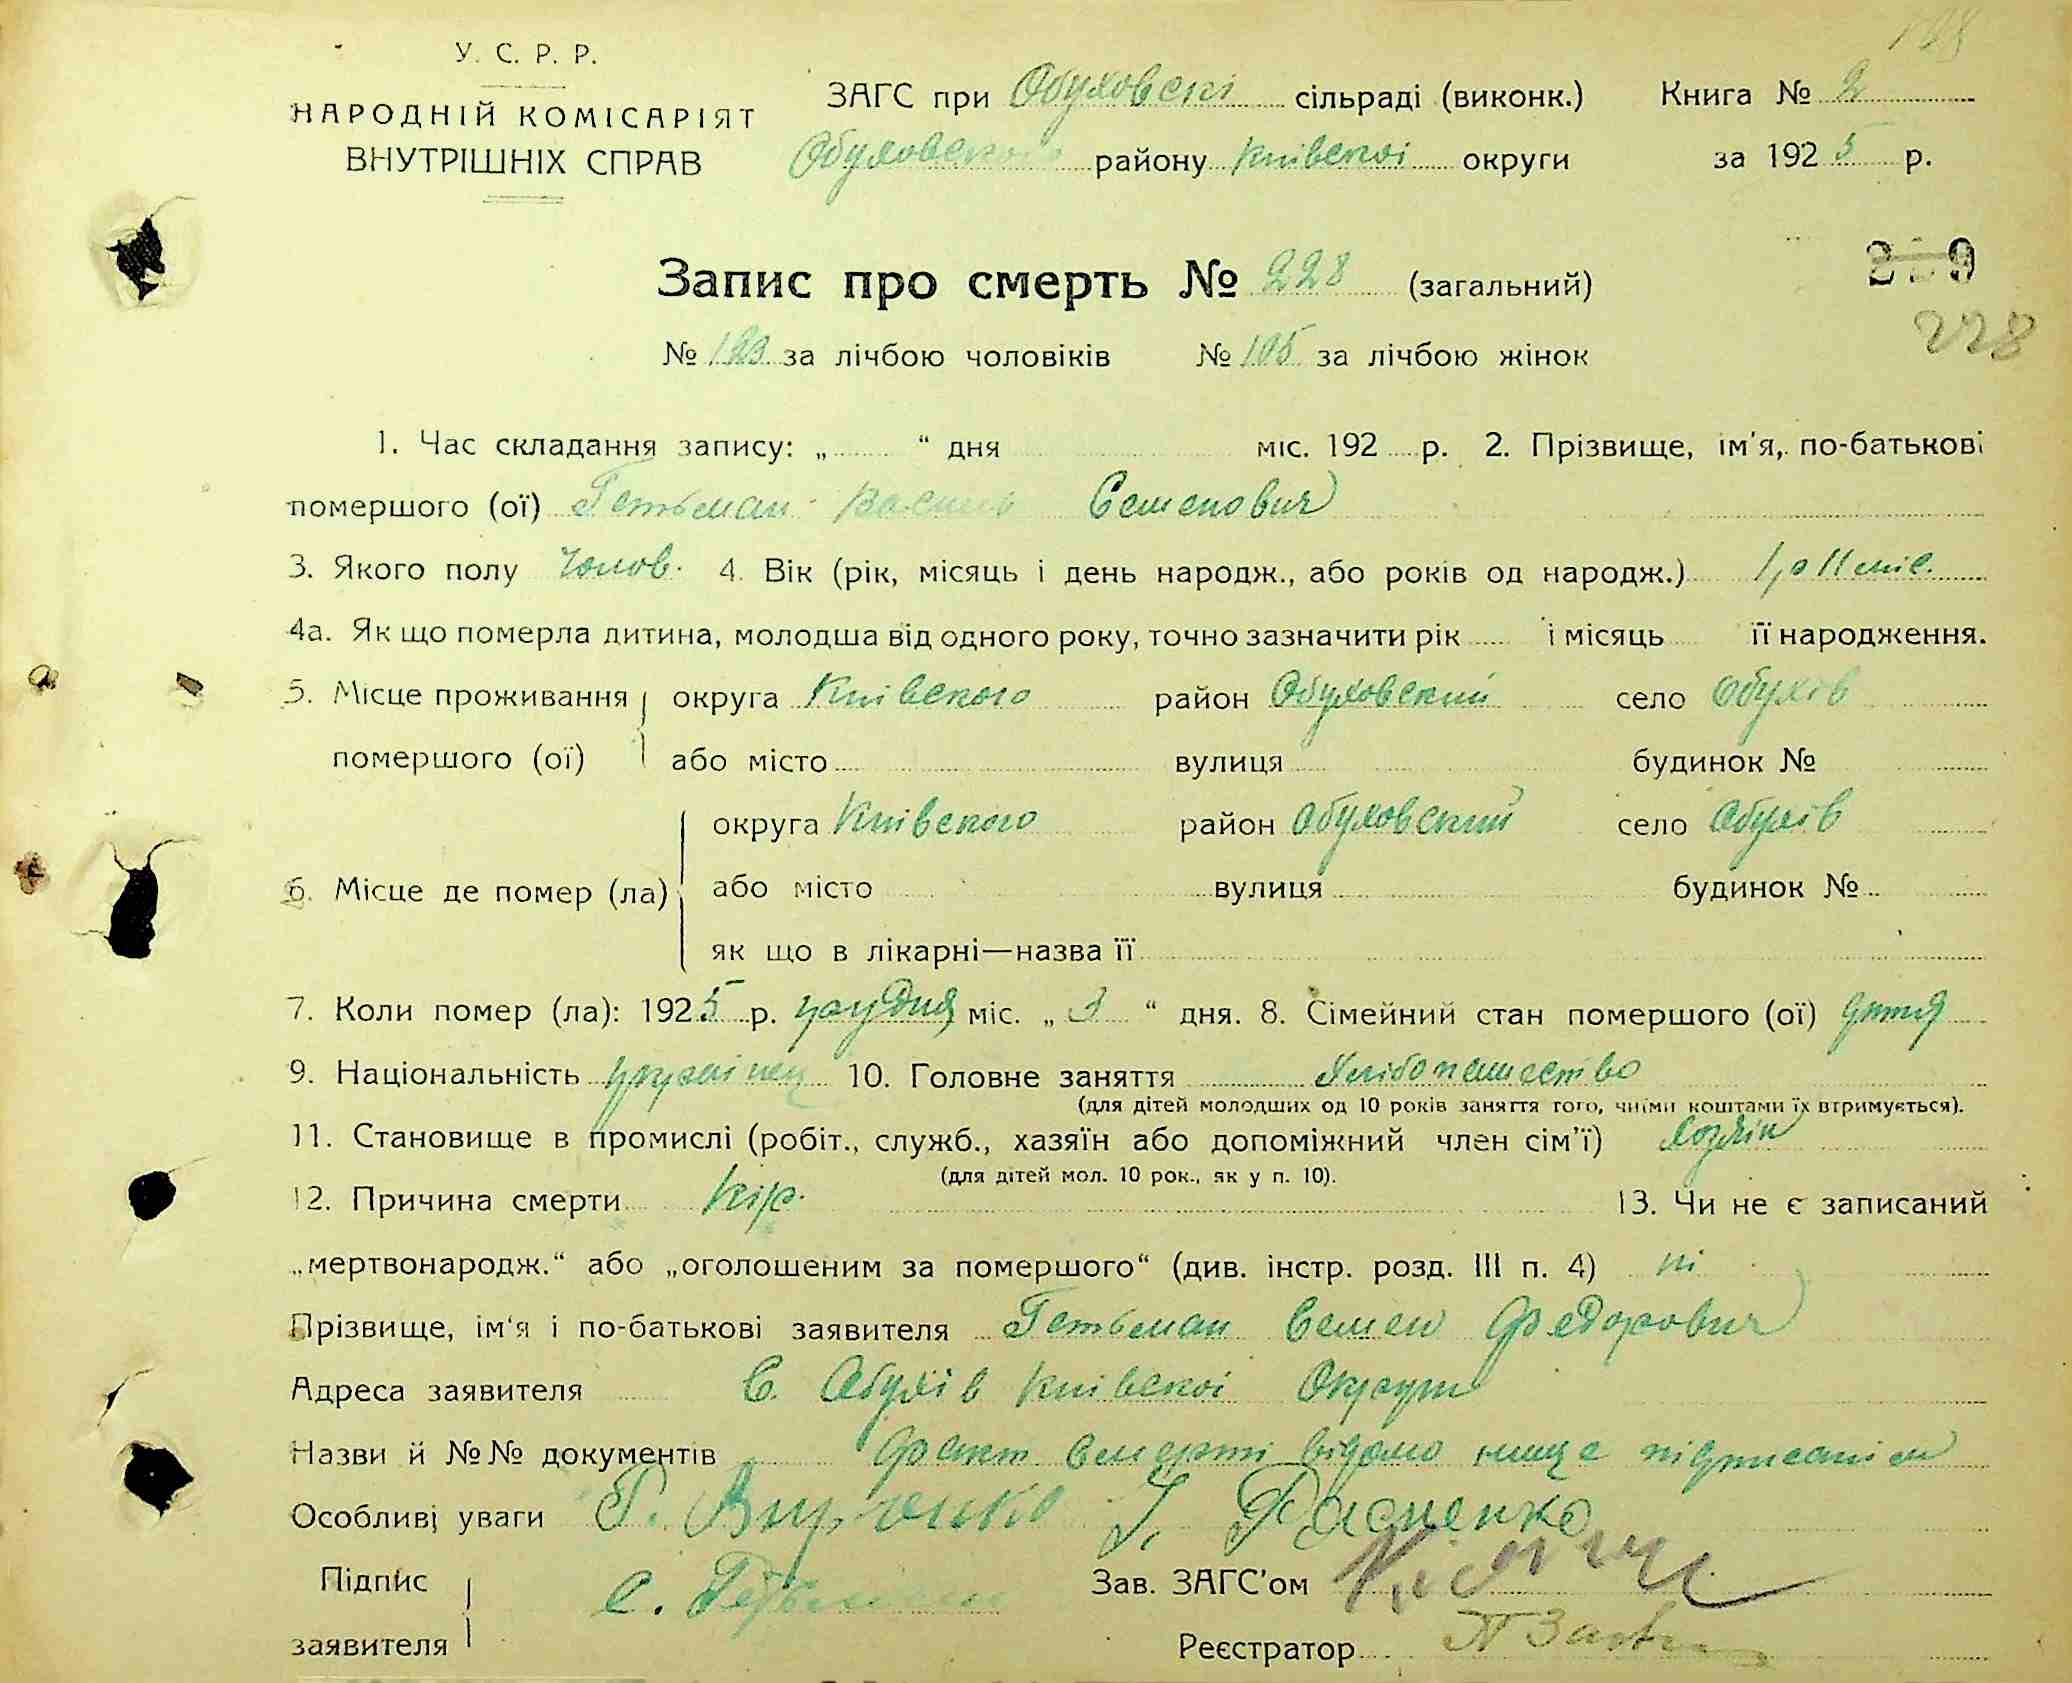 У. С. Р. Р.
НАРОДНІЙ КОМІСАРІЯТ
ВНУТРІШНІХ СПРАВ
ЗАГС при Обуховскі сільраді (виконк.) Книга № 2
Обуховского району Київскоі округи за 1925 р.
Запис про смерть № 228 (загальний)
228
№ 123 за лічбою чоловіків № 105 за лічбою жінок
1. Час складання запису: „ “ дня міс. 192 р. 2. Прізвище, ім'я, по-батькові
помершого (ої) Гетьман Василь Семенович
3. Якого полу Чолов. 4. Вік (рік, місяць і день народж., або років од народж.) 1 р 11 міс.
4а. Як що померла дитина, молодша від одного року, точно зазначити рік і місяць її народження.
5. Місце проживання округа Київского район Обуховский село Обухів
помершого (ої) або місто вулиця будинок №
округа Київского район Обуховский село Обухів
6. Місце де помер (ла) або місто вулиця будинок №
як що в лікарні—назва її
7. Коли помер (ла): 1925 р. грудня міс. „ 3 “ дня. 8. Сімейний стан помершого (ої) дитя
9. Національність українец 10. Головне заняття Хлібопашество
(для дітей молодших од 10 років заняття того, чиїми коштами їх втримується).
11. Становище в промислі (робіт., служб., хазяїн або допоміжний член сім'ї) Хозяін
(для дітей мол. 10 рок., як у п. 10).
12. Причина смерти кір. 13. Чи не є записаний
„мертвонародж.“ або „оголошеним за помершого“ (див. інстр. розд. III п. 4) ні
Прізвище, ім'я і по-батькові заявителя Гетьман Семен Федорович
Адреса заявителя С. Обухів Київскоі Округи
Назви й №№ документів Факт смерті відомо нище підписанім
Особливі уваги Г.
Підпис
С. Гетьман Зав. ЗАГС'ом
заявителя Реєстратор